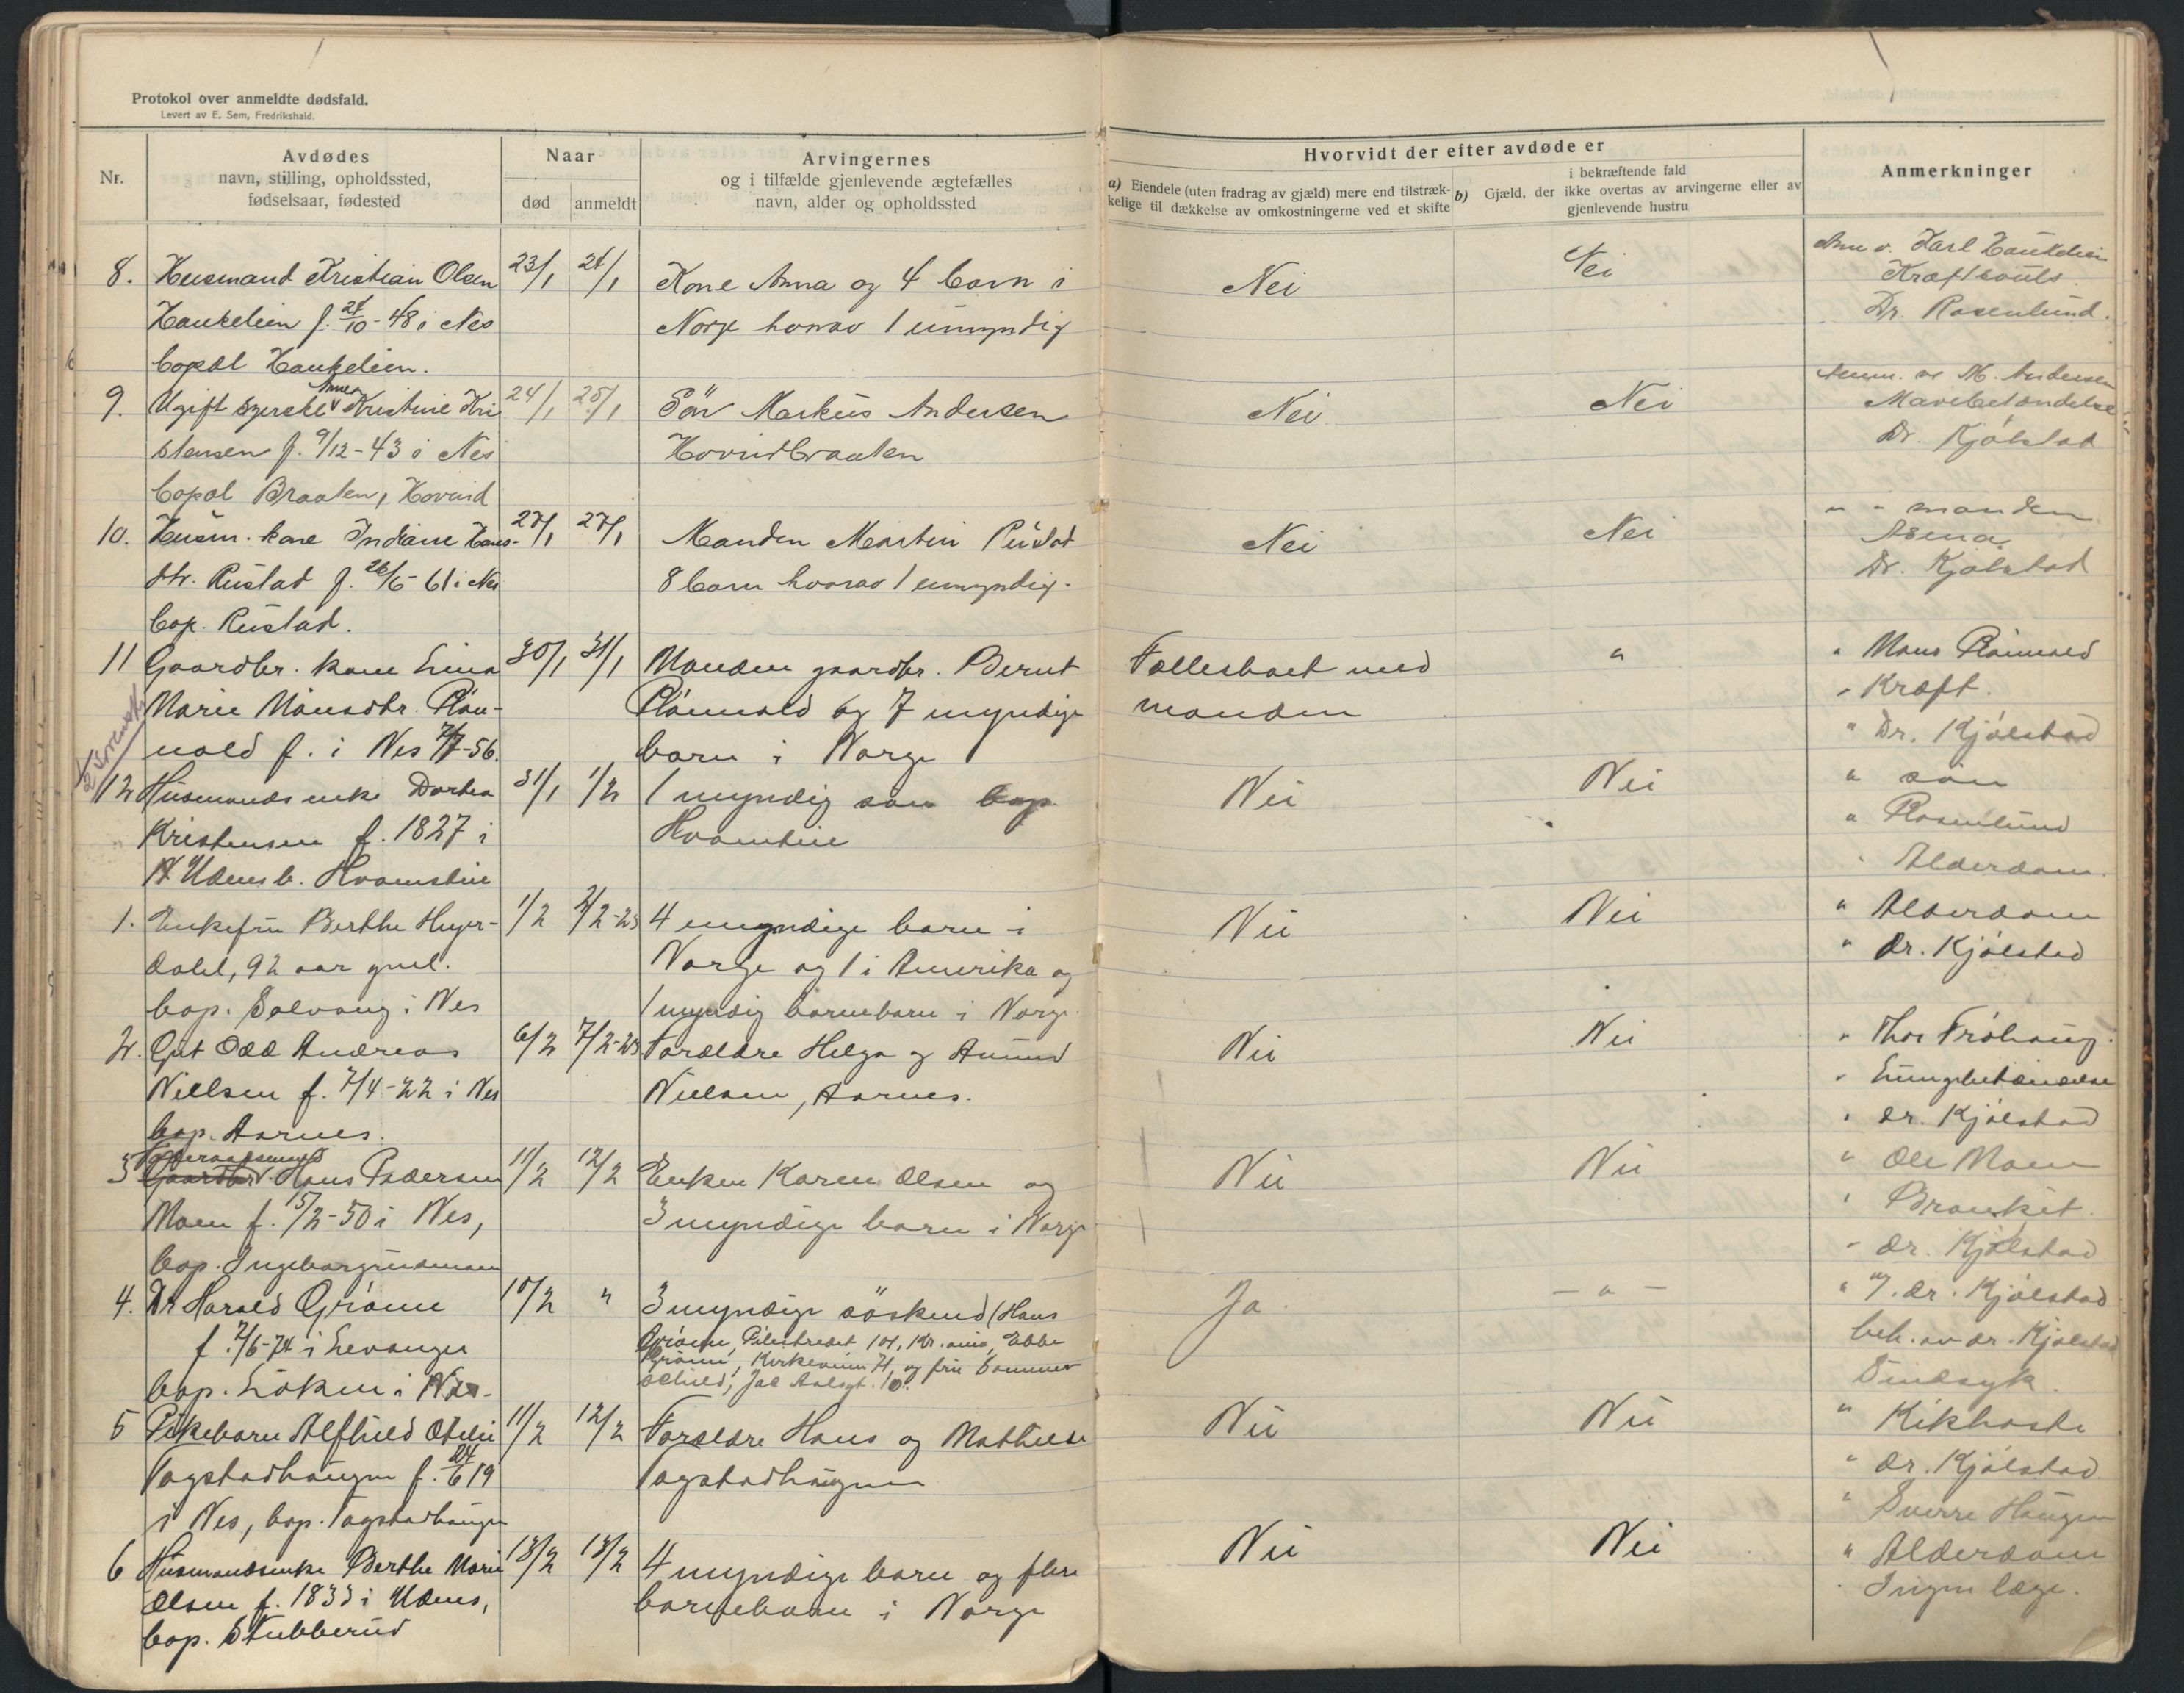 Protokol over anmeldte dødsfald.
Levert av E. Sem, Fredrikshald.
Nr.
Avdødes
navn, stilling, opholdssted,
fødselsaar, fødested
Naar
død
anmeldt
Arvingernes
og i tilfælde gjenlevende ægtefælles
navn, alder og opholdssted
Hvorvidt der efter avdøde er
a) Eiendele (uten fradrag av gjæld) mere end tilstræk-
kelige til dækkelse av omkostningerne ved et skifte
i bekræftende fald
b) Gjæld, der ikke overtas av arvingerne eller av
gjenlevende hustru
Anmerkninger
8. Husmand Kristian Olsen
Haukelien f. 24/10-48 i Nes
bopæl Haukelien.
23/1 24/1
Kone Anna og 4 barn i
Norge hvorav 1 umyndig
Nei
Nei
Anm v. Karl Haukelien
Kræft
Dr. Rosenlund.
9. Ugift syerske Anne Kristine Kri
stensen f. 9/12-43 i Nes
bopæl Braaten, Hovind
24/1 25/1
Sön Markus Andersen
Hovindbraaten
Nei
Nei
Anm. av M. Andersen
Mavebetændelse
Dr. Kjölstad
10. Husm. kone Indiane Hans-
dtr. Rustad f. 26/5-61 i Nes
bop. Rustad.
27/1 27/1
Manden Martin Rustad
8 barn hvorav 1 umyndig.
Nei
Nei
" " manden
Dr. Kjölstad
11 Gaardbr. kone Lina
Marie Mönsdtr. Rön-
nold f. i Nes 7/7-56.
30/1 31/1
Manden gaardbr. Bernt
Rönnold og 7 myndige
barn i Norge
Fællesboet med
manden
"
" Mons Rönnold
" Kræft.
" Dr. Kjölstad
12 Husmandsenke Dortea
Kristensen f. 1827 i
N Udenes b. Hvamstie
31/1 1/2
1 myndig søn bop.
Nei
Nei
" sön
" Rosenlund
" Alderdom.
1. Enkefru Berthe Heyer-
dahl, 92 aar gml.
bop. Solvang i Nes
1/2 2/2-23
4 myndige barn i
Norge og 1 i Amerika og
1 myndig barnebarn i Norge
Nei
Nei
" Alderdom
" Dr. Kjölstad
2. Gut Odd Andreas
Nielsen f. 7/4-22 i Nes
bop. Aarnes.
6/2 7/2-23
Forældre Helga og Amund
Nielsen, Aarnes.
Nei
Nei
" Thor Fröhaug.
" Lungebetændelse
" Dr. Kjölstad
3 Föderaadsmand Gaardbr. Hans Pedersen
Moen f. 15/2-50 i Nes,
bop. Ingeborgrudmoen
11/2 12/2
Enken Karen Olsen og
3 myndige barn i Norge
Nei
Nei
" Ole Moen
" Bronkit.
" Dr. Kjölstad
4. Dr Harald Grönn
f. 7/6-74 i Levanger
bop. Löken i Nes.
10/2 "
3 myndige söskend (Hans
Ja
— " —
" Dr. Kjölstad
beh. av dr. Kjölstad
Sindsyk.
5 Pikebarn Alfhild Otelie
Fagstadhaugen f. 24/6 19
i Nes, bop. Fagstadhaugen
11/2 12/2
Forældre Hans og Mathilde
Fagstadhaugen
Nei
Nei
" Kikhoste
" Dr. Kjölstad
" Sverre Haugen
6 Husmandsenke Berthe Marie
Olsen f. 1833 i Udenes,
bop. Stubberud
13/2 13/2
4 myndige barn og flere
barnebarn i Norge
Nei
Nei
" Alderdom
" Ingen læge.